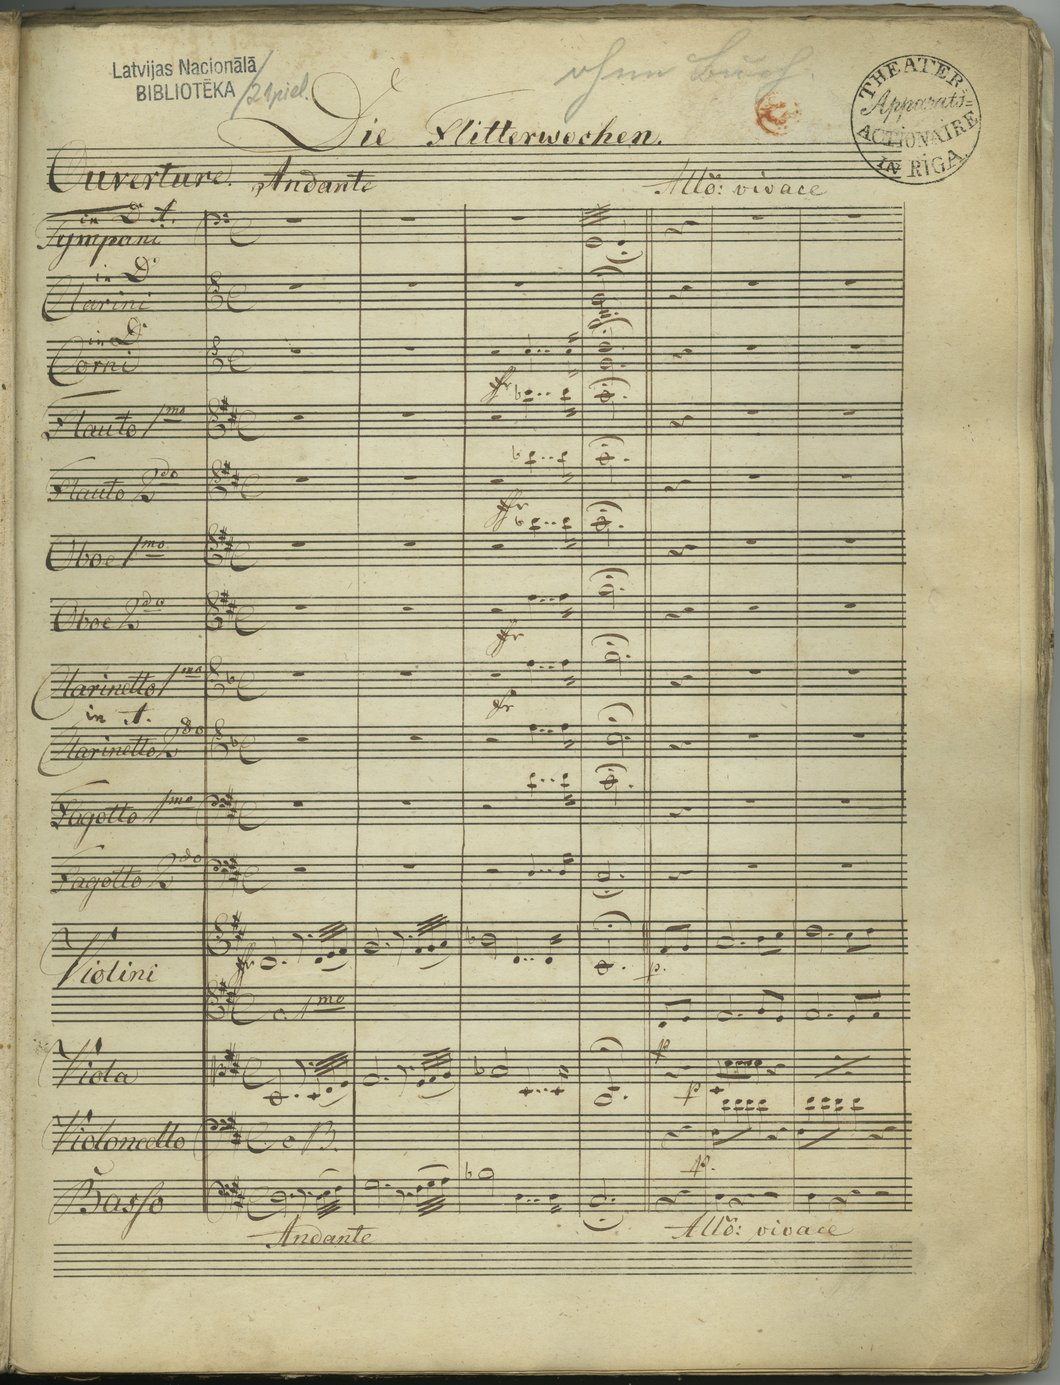 Latvijas Nacionālā
BIBLIOTĒKA
21 piel.
ohne Buch.
THEATER
Apparats=
ACTIONAIRE
IN RIGA.
Die Flitterwochen.
Ouverture. Andante Allo: vivace
in D A.
Tympani
in D.
Clarini
in D.
Corni
Flauto 1mo
Flauto 2do
Oboe 1mo
Oboe 2do
Clarinetto 1mo
in A.
Clarinetto 2do
Fagotto 1mo
Fagotto 2do
Violini
c. 1mo
Viola
Violoncello C o B.
Basso
Andante Allo: vivace